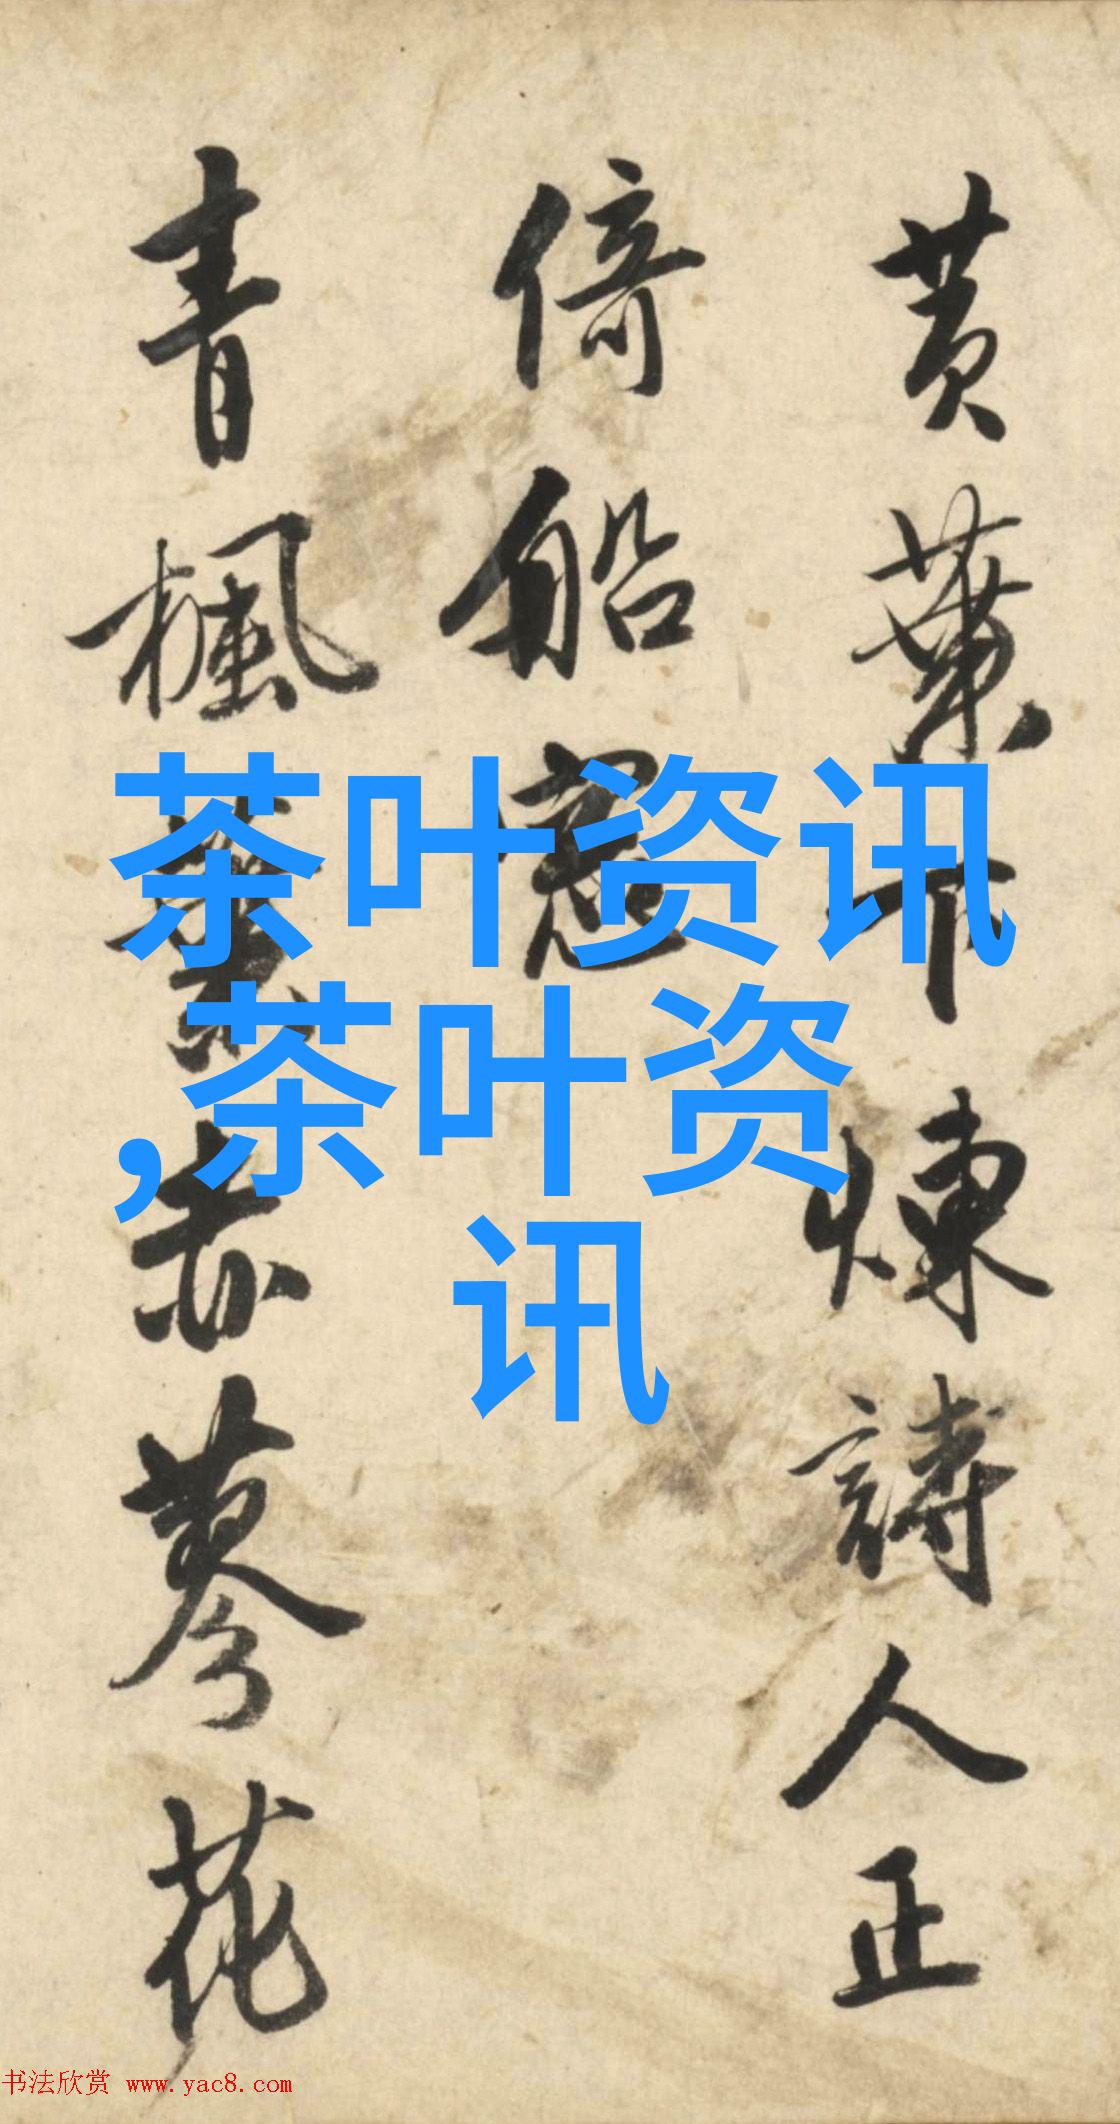 黄葉下煉詩人正
倚船窓
青楓葉赤蓼花
茶叶资讯
,茶叶资
讯
书法欣赏 www.yac8.com